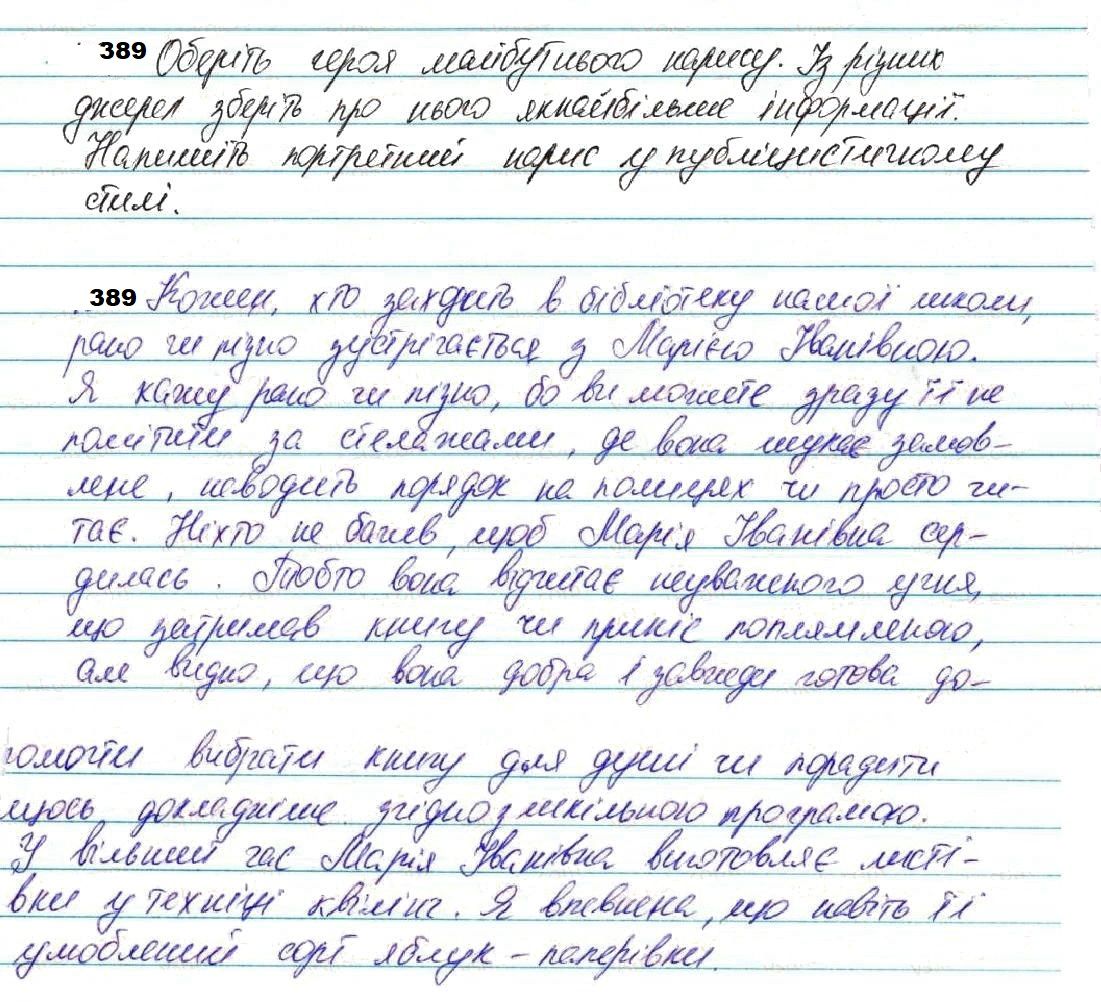 389 Оберіть героя майбутнього нарису. Із різних
джерел зберіть про нього якнайбільше інформації.
Напишіть портретний нарис у публіцистичному
стилі.
389 Кожен, хто заходить в бібліотеку нашої школи,
рано чи пізно зустрічається з Марією Іванівною.
Я кажу рано чи пізно, бо ви можете зразу її не
помітити за стелажами, де вона шукає замов-
лене, наводить порядок на полицях чи просто чи-
тає. Ніхто не бачив, щоб Марія Іванівна сер-
дилась. Тобто вона відчитає неуважного учня,
що затримав книгу чи приніс поплямленою,
але видно, що вона добра і завжди готова до-
помогти вибрати книгу для душі чи порадити
щось докладніше згідно з шкільною програмою.
У вільний час Марія Іванівна виготовляє листі-
вки у техніці квілінг. Я впевнена, що навіть її
улюблений сорт яблук - паперівки.